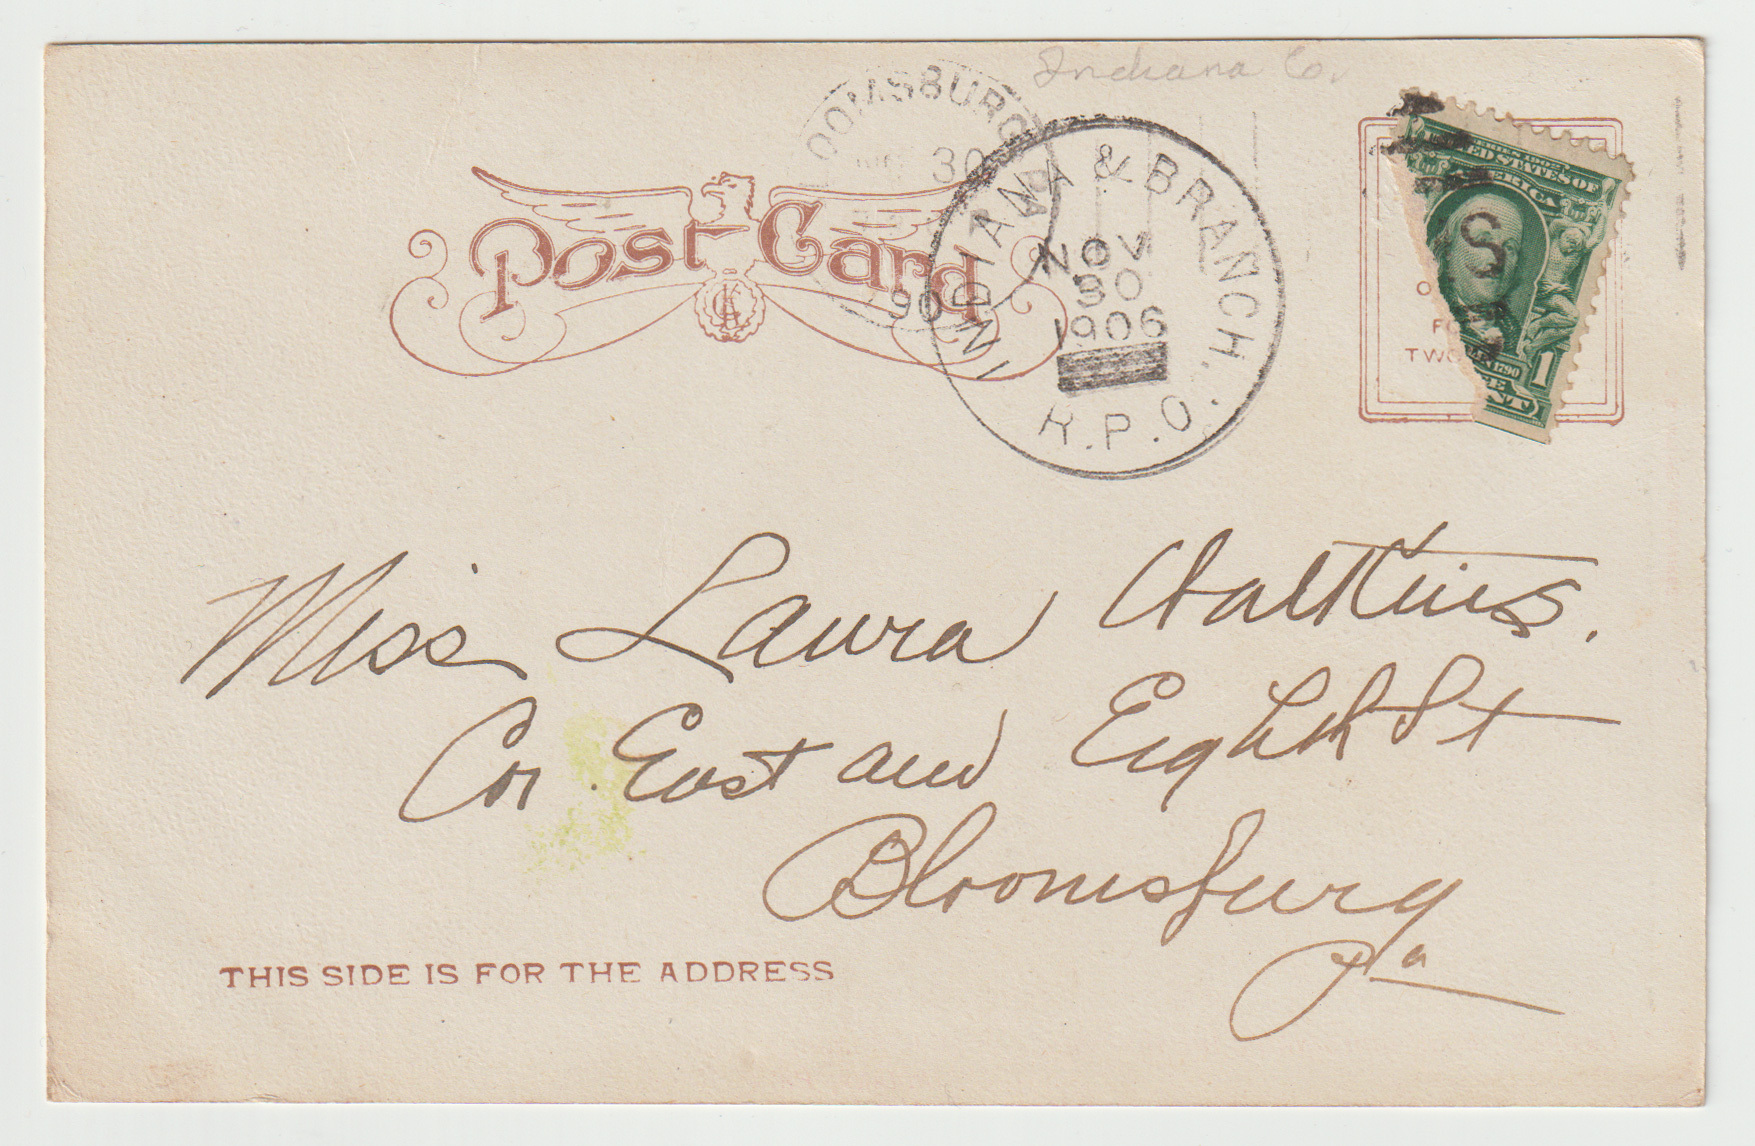 Indiana Co.
OOMSBURG
30
90
INDIANA & BRANCH.
NOV
30
1906
R.P.O.
Post Card
SERIES 1902
UNITED STATES OF
AMERICA
S
1790
1
TWO
Miss Laura Watkins.
Cor. East and Eighth St
Bloomsburg
Pa
THIS SIDE IS FOR THE ADDRESS